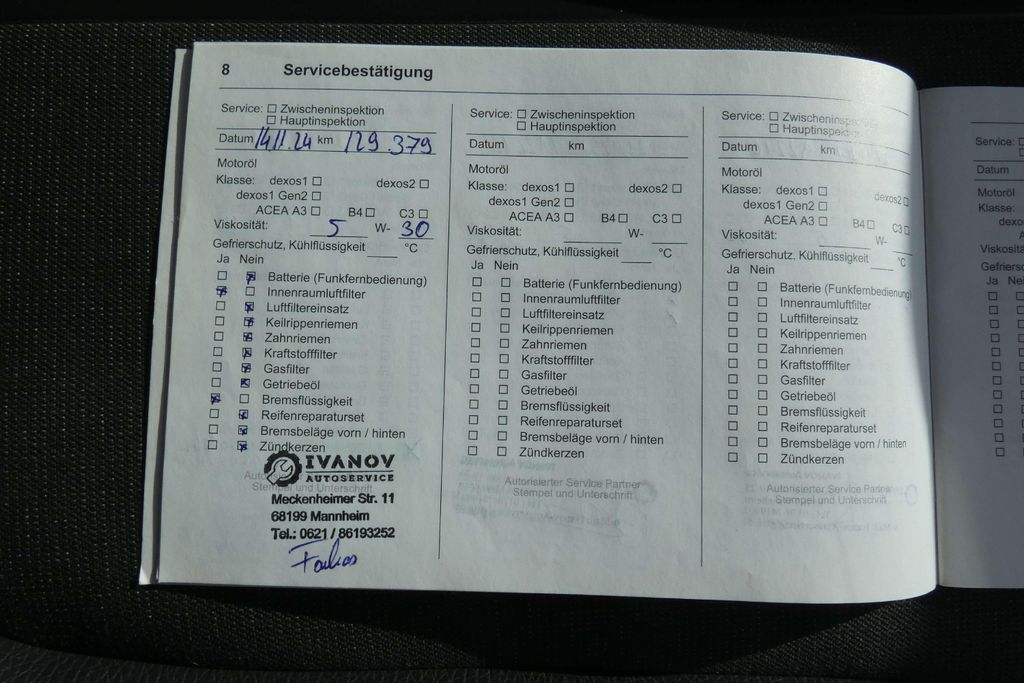 8 Servicebestätigung
Service: ☐ Zwischeninspektion
☐ Hauptinspektion
Datum 14.11.24 km 129.379
Motoröl
Klasse: dexos1 ☐ dexos2 ☐
dexos1 Gen2 ☐
ACEA A3 ☐ B4 ☐ C3 ☐
Viskosität: 5 W- 30
Gefrierschutz, Kühlflüssigkeit ____ °C
Ja Nein
☐ ☒ Batterie (Funkfernbedienung)
☒ ☐ Innenraumluftfilter
☐ ☒ Luftfiltereinsatz
☐ ☒ Keilrippenriemen
☐ ☒ Zahnriemen
☐ ☒ Kraftstofffilter
☐ ☒ Gasfilter
☐ ☒ Getriebeöl
☒ ☐ Bremsflüssigkeit
☐ ☒ Reifenreparaturset
☐ ☒ Bremsbeläge vorn / hinten
☐ ☒ Zündkerzen
IVANOV
AUTOSERVICE
Stempel und Unterschrift
Meckenheimer Str. 11
68199 Mannheim
Tel.: 0621 / 86193252
Service: ☐ Zwischeninspektion
☐ Hauptinspektion
Datum km
Motoröl
Klasse: dexos1 ☐ dexos2 ☐
dexos1 Gen2 ☐
ACEA A3 ☐ B4 ☐ C3 ☐
Viskosität: ____ W- ____
Gefrierschutz, Kühlflüssigkeit ____ °C
Ja Nein
☐ ☐ Batterie (Funkfernbedienung)
☐ ☐ Innenraumluftfilter
☐ ☐ Luftfiltereinsatz
☐ ☐ Keilrippenriemen
☐ ☐ Zahnriemen
☐ ☐ Kraftstofffilter
☐ ☐ Gasfilter
☐ ☐ Getriebeöl
☐ ☐ Bremsflüssigkeit
☐ ☐ Reifenreparaturset
☐ ☐ Bremsbeläge vorn / hinten
☐ ☐ Zündkerzen
Autorisierter Service Partner
Stempel und Unterschrift
Service: ☐ Zwischeninspektion
☐ Hauptinspektion
Datum km
Motoröl
Klasse: dexos1 ☐ dexos2 ☐
dexos1 Gen2 ☐
ACEA A3 ☐ B4 ☐ C3 ☐
Viskosität: ____ W- ____
Gefrierschutz, Kühlflüssigkeit ____ °C
Ja Nein
☐ ☐ Batterie (Funkfernbedienung)
☐ ☐ Innenraumluftfilter
☐ ☐ Luftfiltereinsatz
☐ ☐ Keilrippenriemen
☐ ☐ Zahnriemen
☐ ☐ Kraftstofffilter
☐ ☐ Gasfilter
☐ ☐ Getriebeöl
☐ ☐ Bremsflüssigkeit
☐ ☐ Reifenreparaturset
☐ ☐ Bremsbeläge vorn / hinten
☐ ☐ Zündkerzen
Autorisierter Service Partner
Stempel und Unterschrift
Service: ☐
Datum
Motoröl
Klasse:
Ja